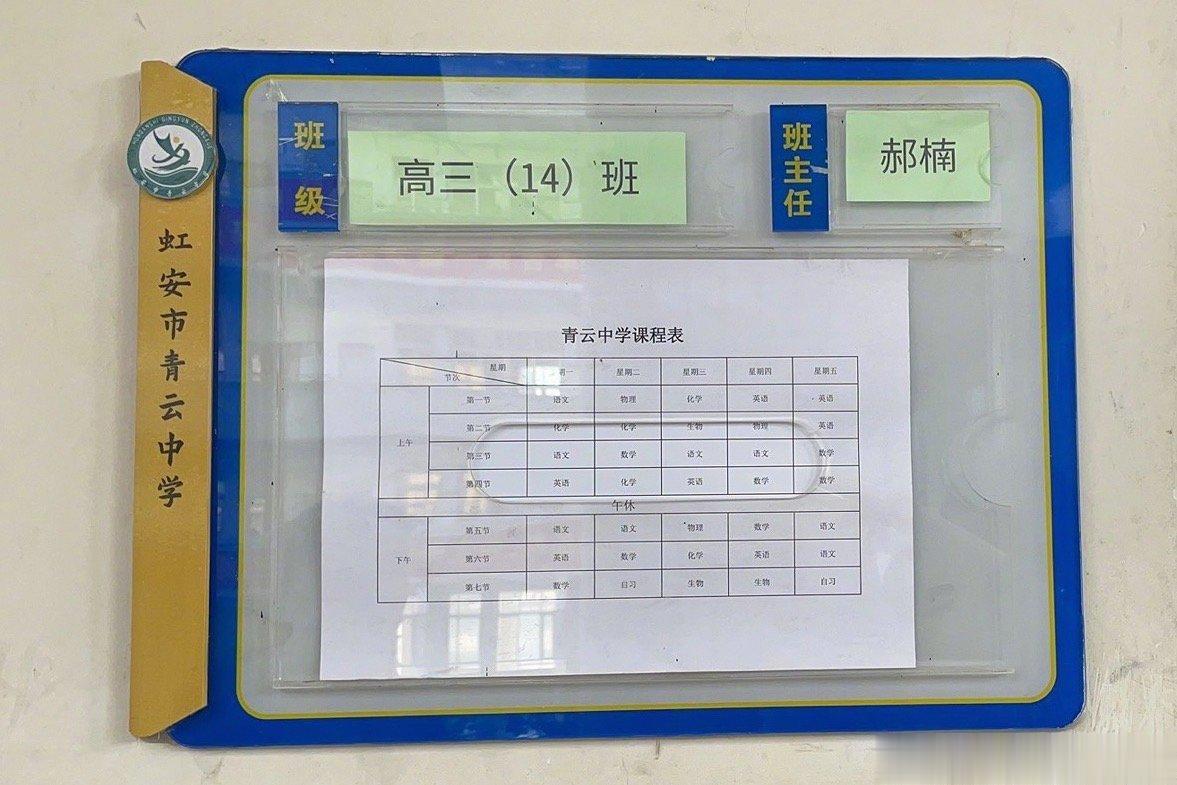 虹安市青云中学
班级
高三（14）班
班主任
郝楠
青云中学课程表
星期
节次
期一 星期二 星期三 星期四 星期五
上午
第一节 语文 物理 化学 英语 英语
第二节 化学 化学 生物 物理 英语
第三节 语文 数学 语文 语文 数学
第四节 英语 化学 英语 数学 数学
午休
下午
第五节 语文 语文 物理 数学 语文
第六节 英语 数学 化学 英语 语文
第七节 数学 自习 生物 生物 自习